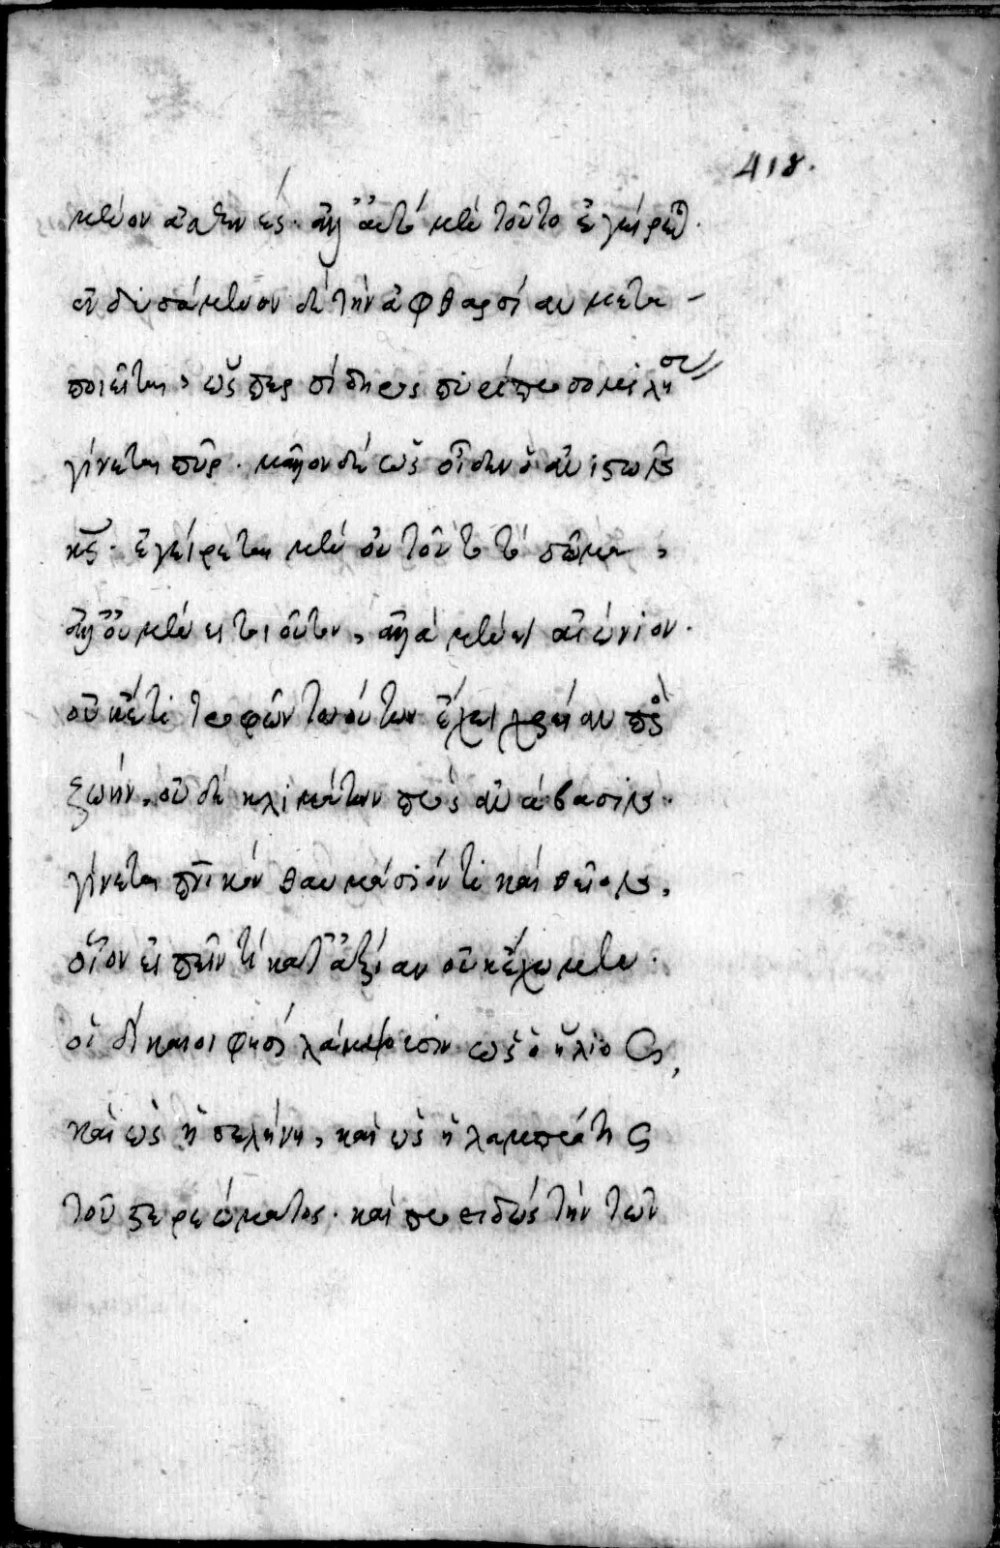 418.
μένον ἀσθενές. ἀλλ' αὐτὸ μὲν τοῦτο ἐγείρεται.
ἐνδυσάμενον δὲ τὴν ἀφθαρσίαν μετα-
ποιεῖται, ὥσπερ σίδηρος πυρὶ προσομιλήσας
γίνεται πῦρ. μᾶλλον δὲ ὡς οἶδεν ὁ ἀνιστῶν
κς. ἐγείρεται μὲν οὖν τοῦτο τὸ σῶμα,
ἀλλ' οὐ μένει τοιοῦτον, ἀλλὰ μένει αἰώνιον.
οὐκέτι τροφῶν τοιούτων ἔχει χρείαν πρὸς
ζωήν, οὐδὲ κλιμάτων πρὸς ἀνάβασιν.
γίνεται πνικὸν θαυμάσιόν τι καὶ θεῖον,
οἷον εἰπεῖν τί κατ' ἀξίαν οὐκ ἔχωμεν.
οἱ δίκαιοι φησὶ λάμψωσιν ὡς ὁ ἥλιος,
καὶ ὡς ἡ σελήνη, καὶ ὡς ἡ λαμπρότης
τοῦ στερεώματος. καὶ προειδὼς τὴν τῶν